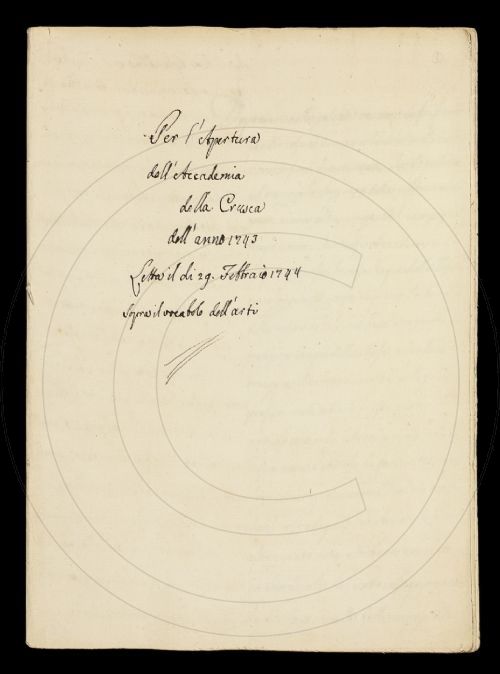 Per l'Apertura
dell'Accademia
della Crusca
dell'anno 1743
Letta il di 29. Febbraio 1744
Sopra il vocabolo dell'arti